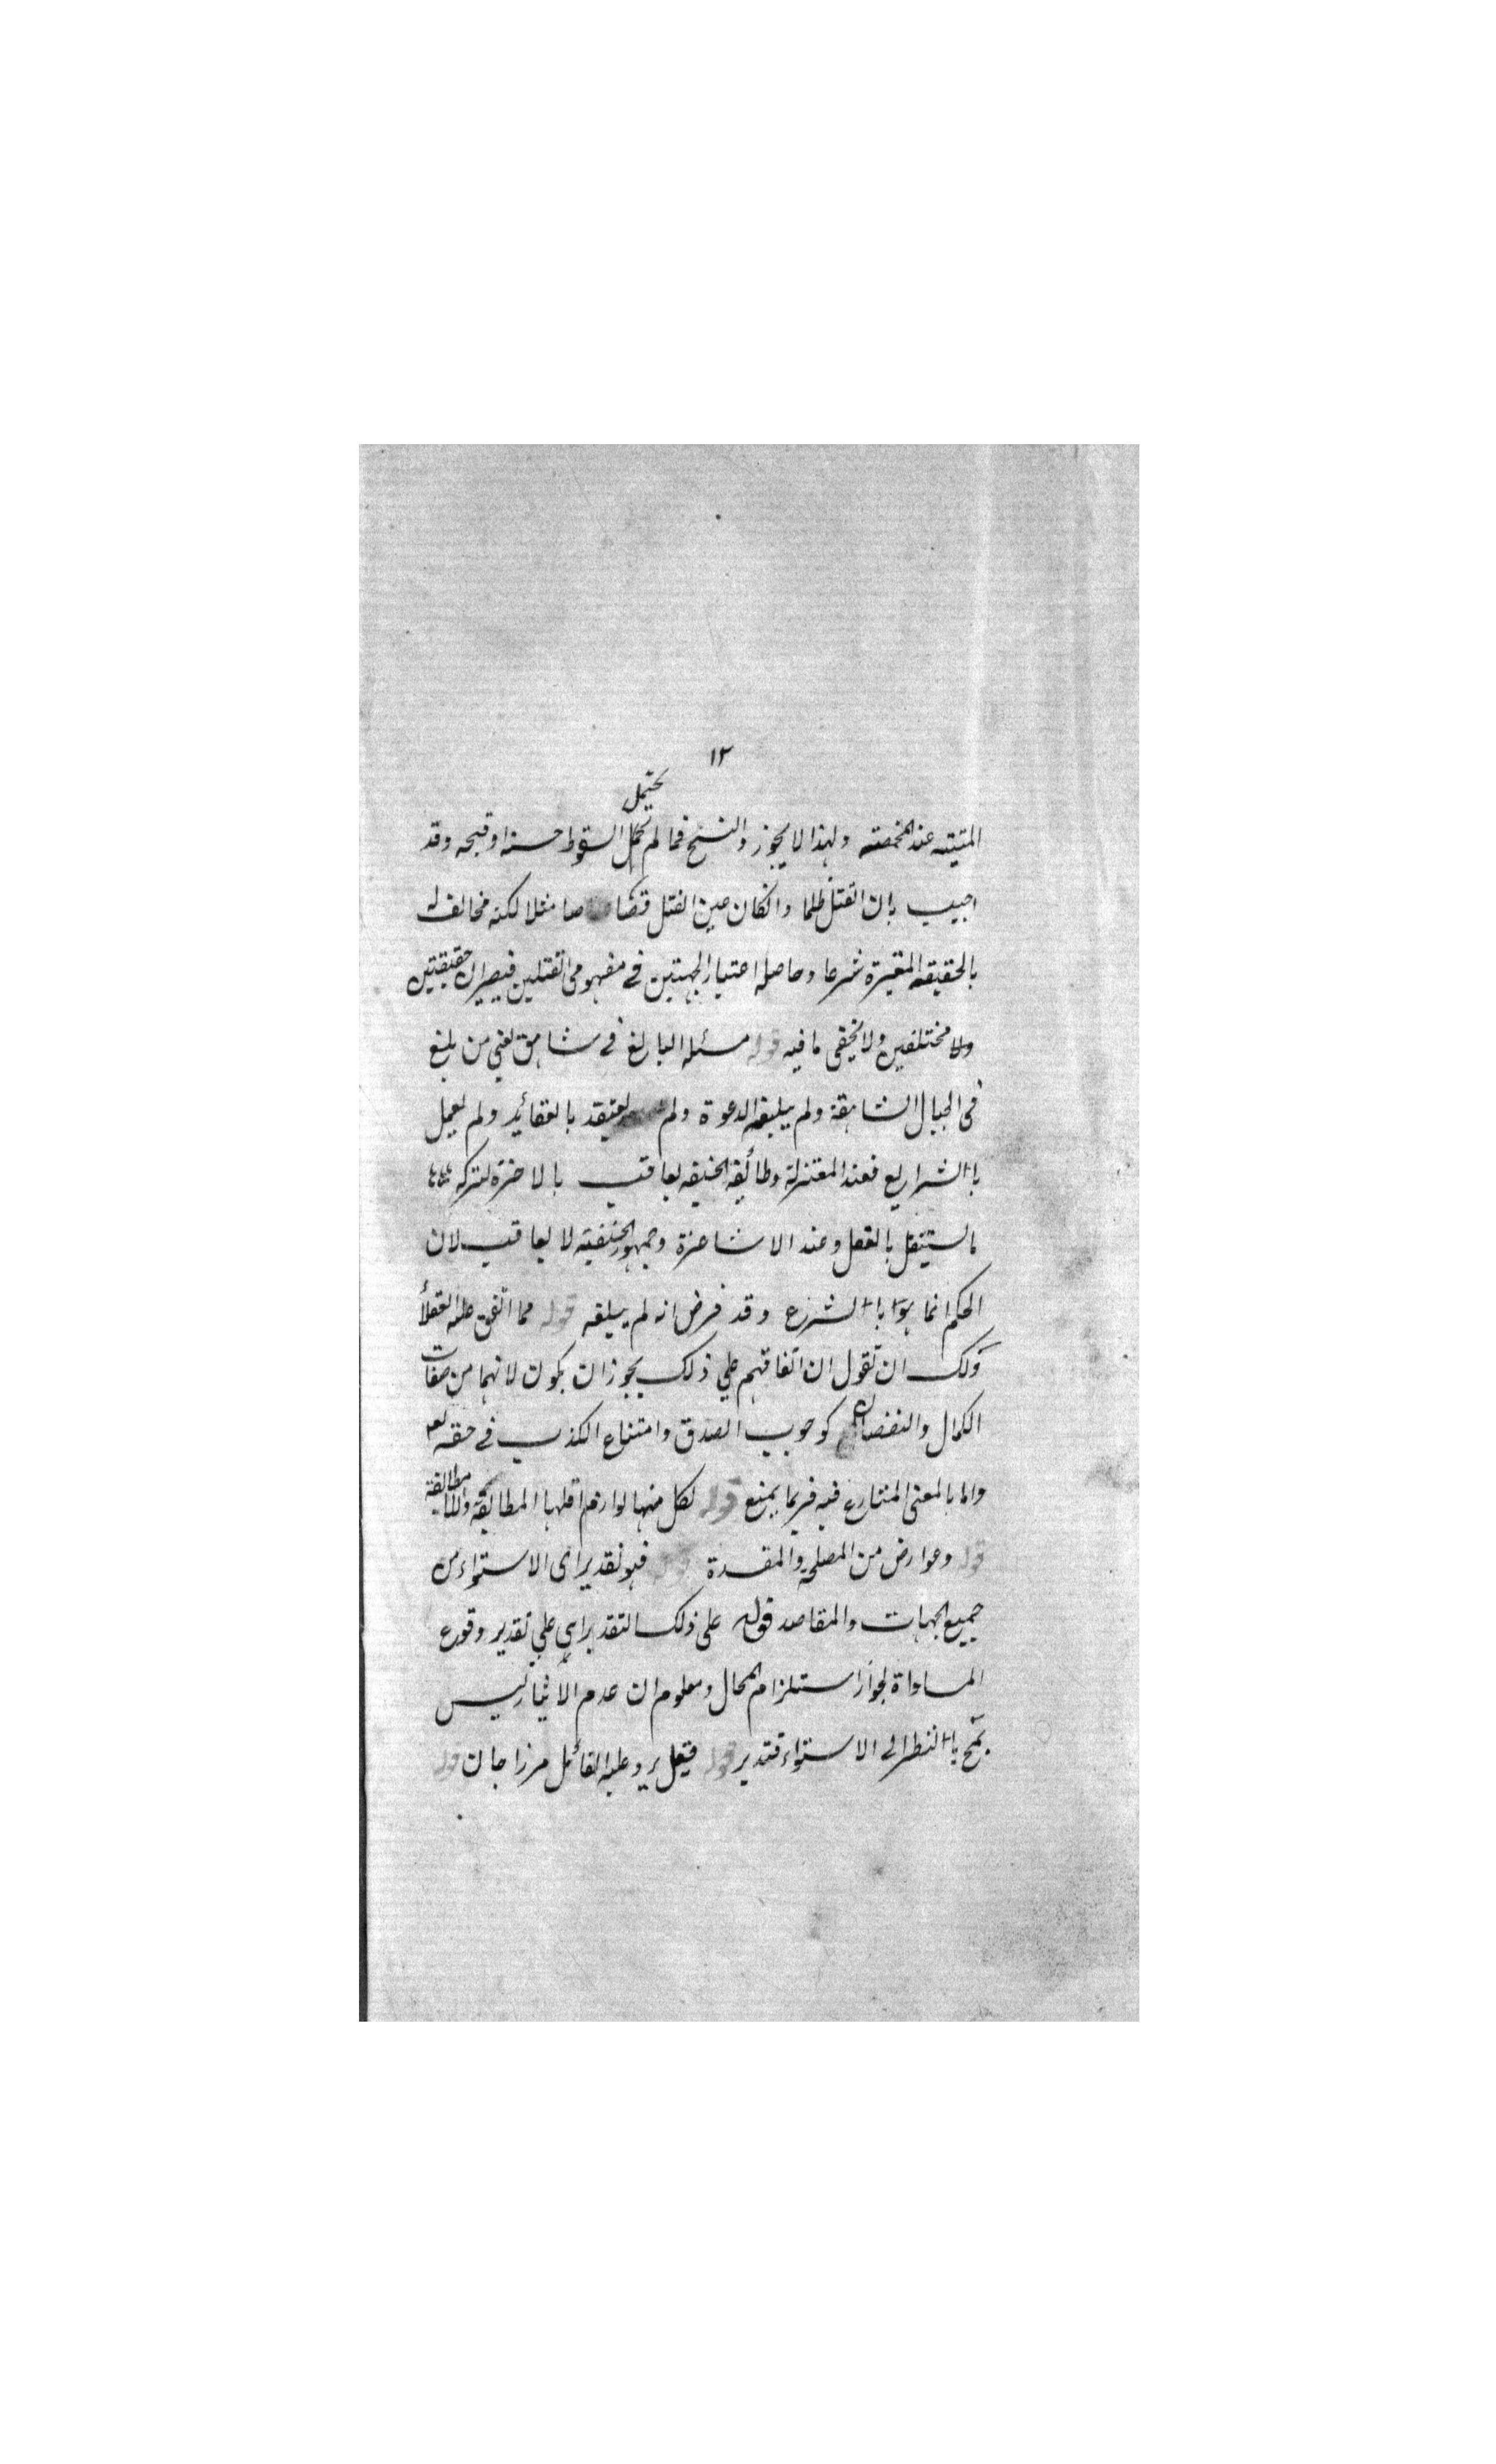 ١٣
يحتمل
الميتة عند المخمصة ولهذا لا يجوز والنسخ فما لم يحتمل السقوط حسنه او قبحه وقد
اجيب بان القتل ظلما وانكان عين القتل قصاصا مثلا لكنه مخالف له
بالحقيقة المعتبرة شرعا وحاصله اعتبار الجهتين في مفهومي القتلين فيصيران حقيقتين
ولا مختلفين ولا يخفى ما فيه قوله مسئله البالغ في شاهق يعني من بلغ
في الجبال الشاهقة ولم يبلغه الدعوة ولم يعتقد بالعقائد ولم يعمل
باالشرايع فعند المعتزلة وطائفة الحنيفه يعاقب بالاخرة لتركه
ما يستقل بالعقل وعند الاشاعرة وجمهور الحنفية لا يعاقب لان
الحكم انما هو باالشرع وقد فرض انه لم يبلغه قوله مما اتفق عليه العقلأ
ولك ان تقول ان اتفاقهم علي ذلك يجوز ان يكون لانهما من صفات
الكمال والنقصان كوجوب الصدق وامتناع الكذب في حقه تعـ
واما بالمعنى المتنازع فيه فربما يمنع قوله لكل منهما لوازم اقلها المطابقة واللامطابقة
قوله وعوارض من المصلحة والمفسدة قوله فهو تقدير اى الاستواء من
جميع الجهات والمقاصد قوله على ذلك التقدير اي علي تقدير وقوع
المساواة لجواز استلزام المحال ومعلوم ان عدم الأيثار ليس
بقبح باالنظر الى الاستواء فتدبر قوله فيقل يرد عليه القائل مرزا جان قوله